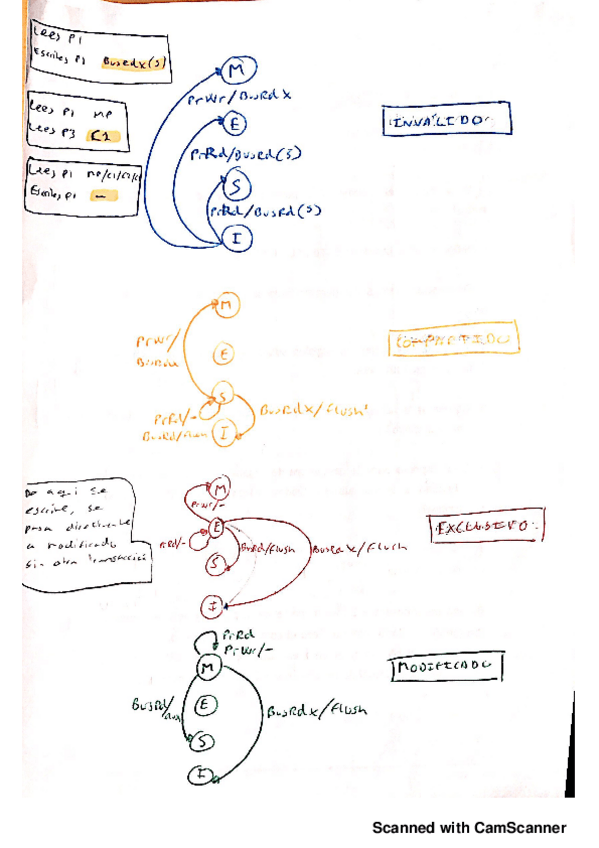 Lees P1
Escribes P1 BusRdX(S)
M
PrWr/BusRdX
Lees P1 MP
Lees P3 C1
E
INVALIDO:
PrRd/BusRd(S)
Lees P1
Escribes P1 —
S
PrRd/BusRd(S)
I
M
PrWr/
E
COMPARTIDO
S
PrRd/-
BusRdX/Flush'
I
M
De aquí se
escribe, se
pasa directamente
a modificado
sin otra transacción
PrWr/-
E
EXCLUSIVO:
PrRd/-
BusRd/Flush
BusRdX/Flush
S
I
PrRd
PrWr/-
M
MODIFICADO
BusRd/
E
BusRdX/Flush
S
I
Scanned with CamScanner